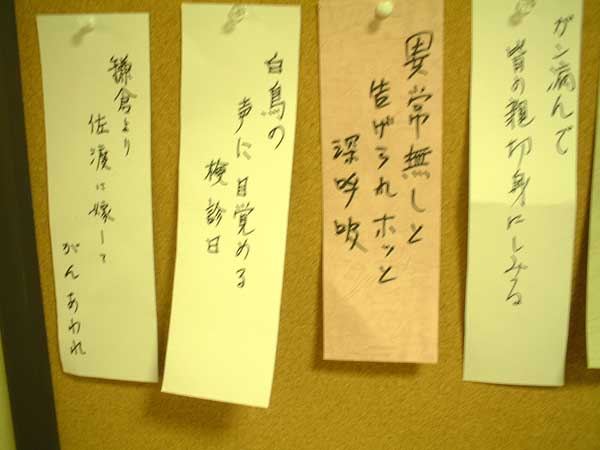 ガン病んで
皆の親切身にしみる
異常無しと
告げられホッと
深呼吸
白鳥の
声に目覚める
検診日
鎌倉より
佐渡に嫁して
がんあわれ